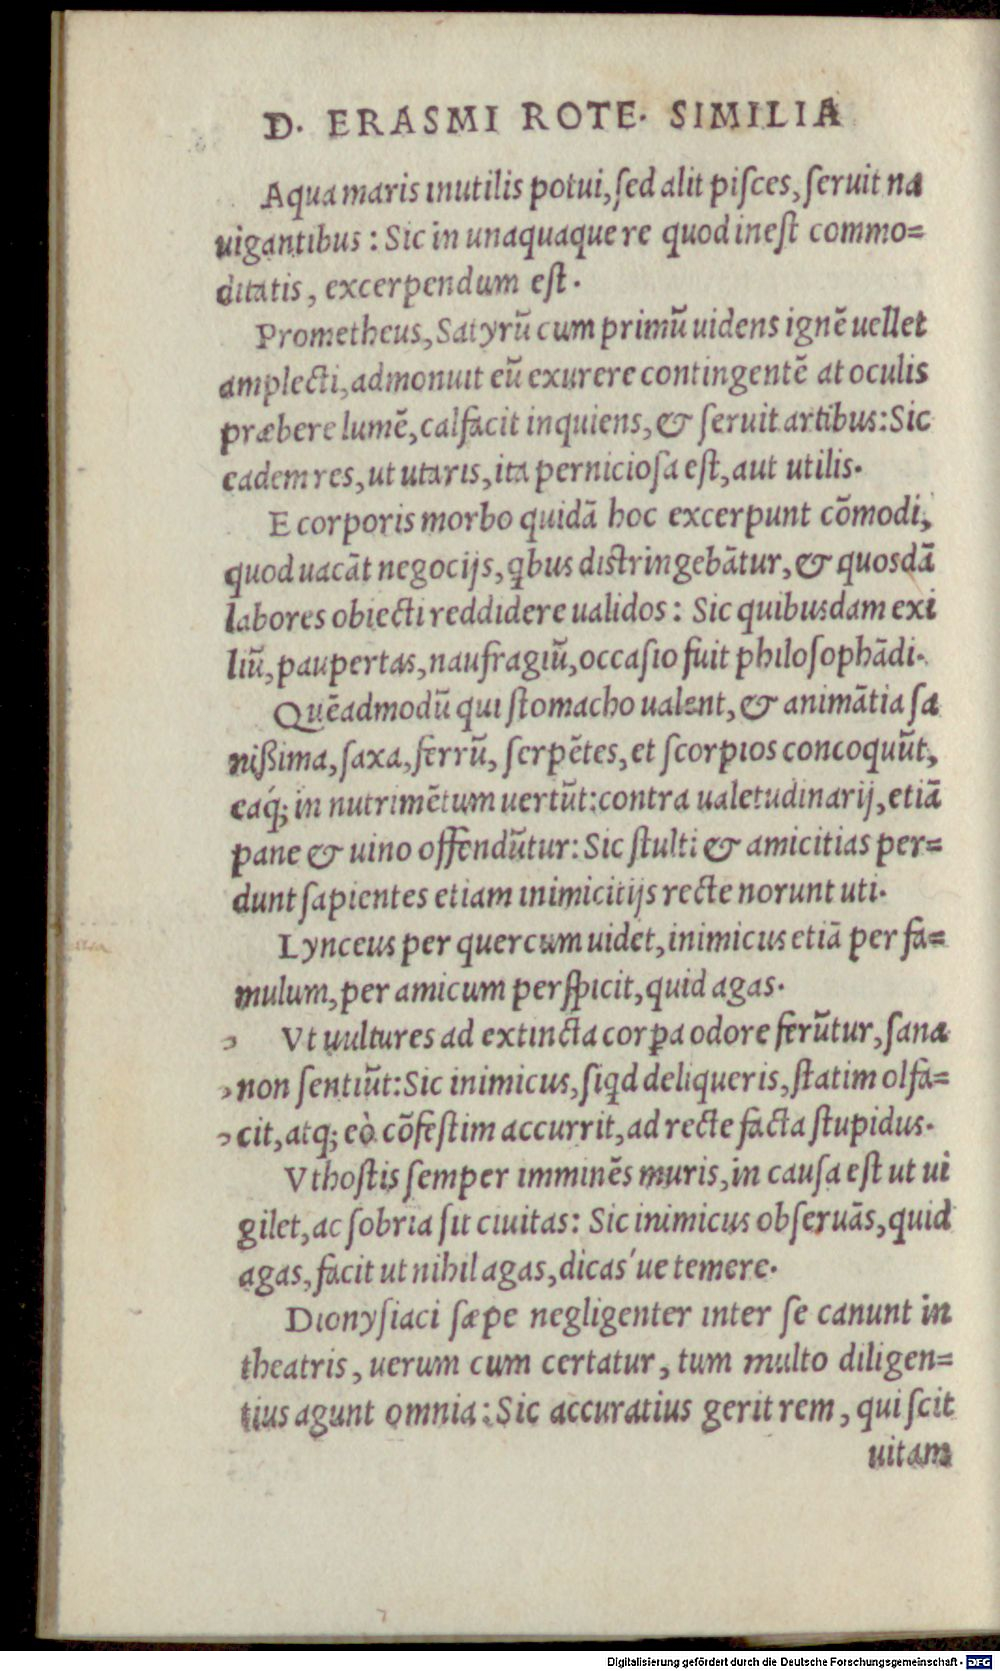 D. ERASMI ROTE. SIMILIA
Aqua maris inutilis potui, ſed alit piſces, ſeruit na
uigantibus : Sic in unaquaque re quod ineſt commo=
ditatis, excerpendum eſt.
Prometheus, Satyrũ cum primũ uidens ignẽ uellet
amplecti, admonuit eũ exurere contingentẽ at oculis
præbere lumẽ, calfacit inquiens, & ſeruit artibus: Sic
eadem res, ut utaris, ita pernicioſa eſt, aut utilis.
E corporis morbo quidã hoc excerpunt cõmodi,
quod uacãt negocijs, qbus distringebãtur, & quosdã
labores obiecti reddidere ualidos : Sic quibusdam exi
liũ, paupertas, naufragiũ, occaſio fuit philoſophãdi.
Quẽadmodũ qui ſtomacho ualent, & animãtia ſa
nißima, ſaxa, ferrũ, ſerpẽtes, et ſcorpios concoquũt,
eaq́; in nutrimẽtum uertũt: contra ualetudinarij, etiã
pane & uino offendũtur: Sic ſtulti & amicitias per=
dunt ſapientes etiam inimicitijs recte norunt uti.
Lynceus per quercum uidet, inimicus etiã per fa=
mulum, per amicum perſpicit, quid agas.
Vt uultures ad extincta corꝑa odore ferũtur, ſana
non ſentiũt: Sic inimicus, ſiqd deliqueris, ſtatim olfa=
cit, atq; eò cõfeſtim accurrit, ad recte facta ſtupidus.
Vt hoſtis ſemper imminẽs muris, in cauſa eſt ut ui
gilet, ac ſobria ſit ciuitas: Sic inimicus obſeruãs, quid
agas, facit ut nihil agas, dicas'ue temere.
Dionyſiaci ſæpe negligenter inter ſe canunt in
theatris, uerum cum certatur, tum multo diligen=
tius agunt omnia: Sic accuratius gerit rem, qui ſcit
uitam
Digitalisierung gefördert durch die Deutsche Forschungsgemeinschaft - DFG